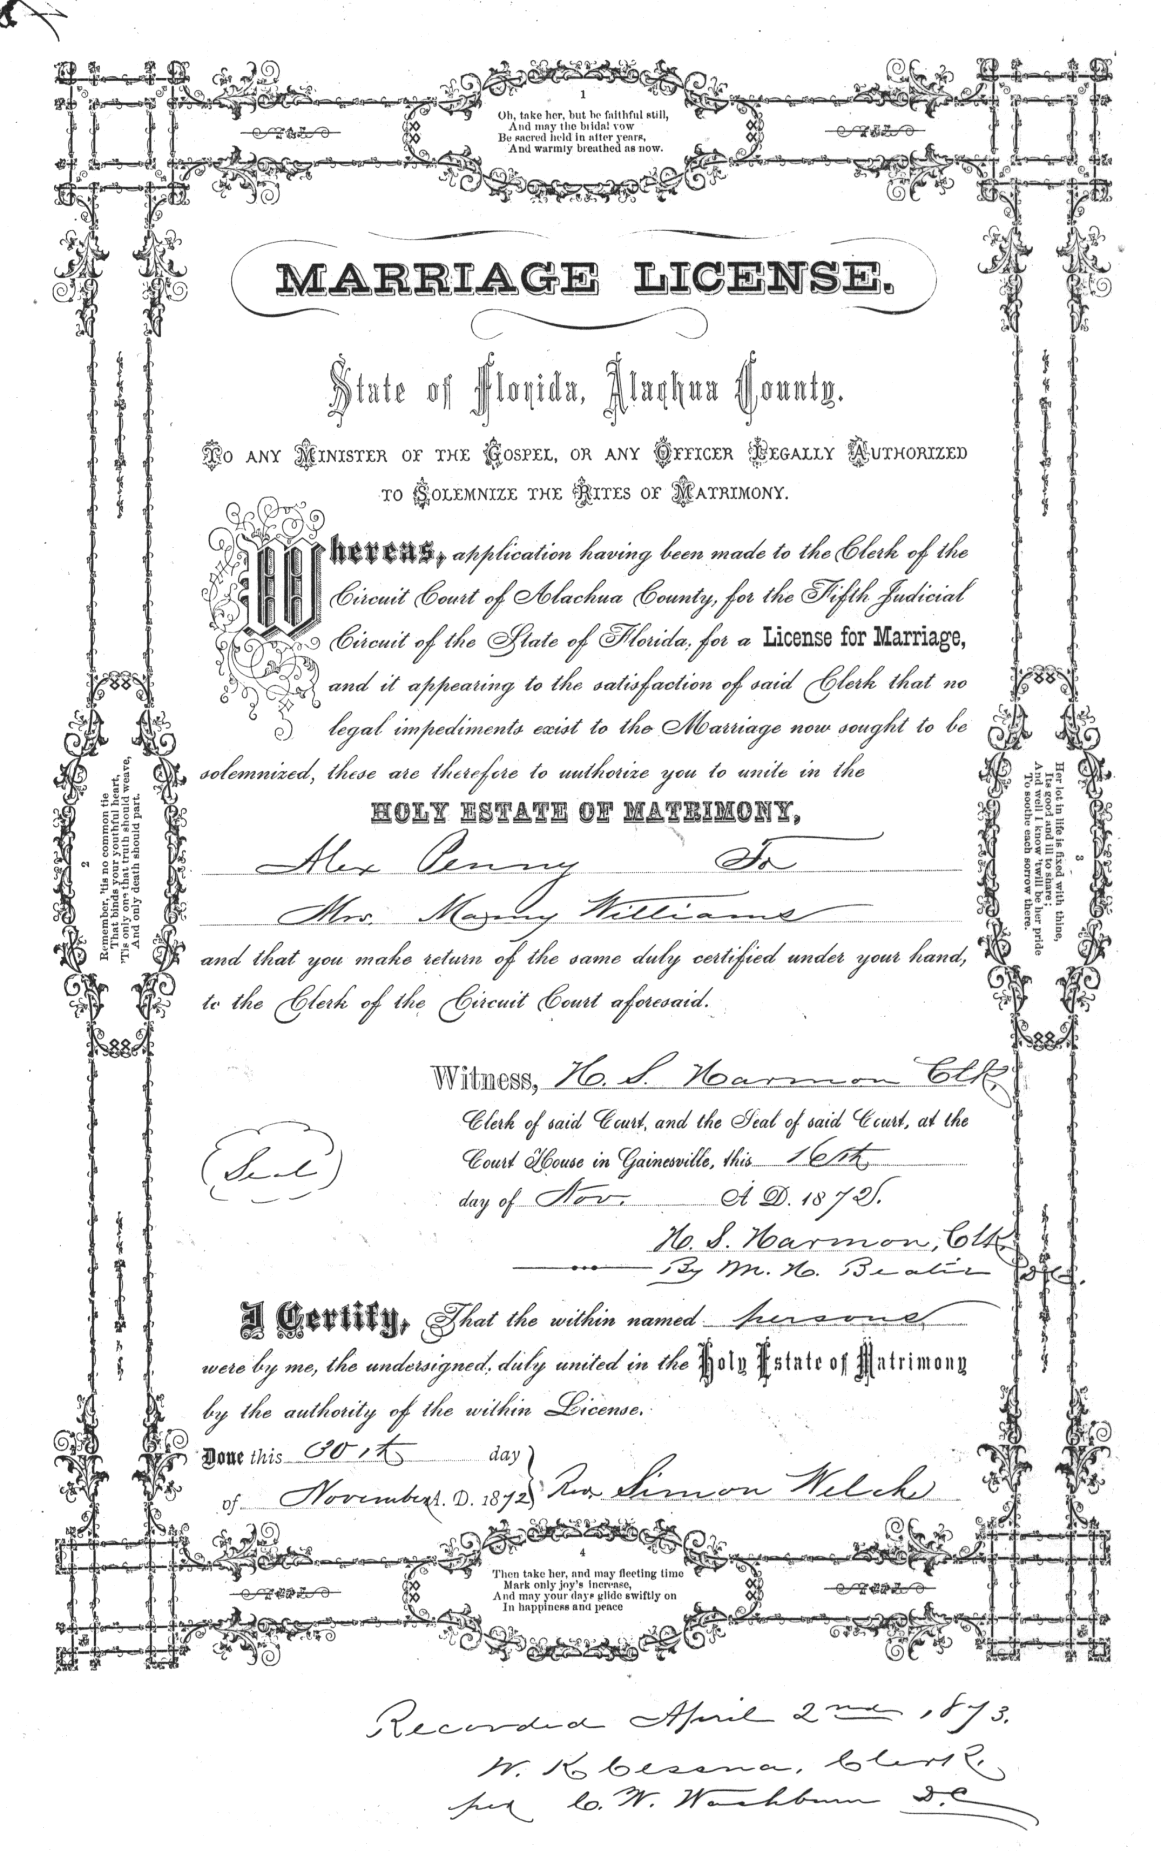 1
Oh, take her, but be faithful still,
And may the bridal vow
Be sacred held in after years,
And warmly breathed as now.
MARRIAGE LICENSE.
State of Florida, Alachua County.
To any Minister of the Gospel, or any Officer Legally Authorized
to Solemnize the Rites of Matrimony.
Whereas, application having been made to the Clerk of the
Circuit Court of Alachua County, for the Fifth Judicial
Circuit of the State of Florida, for a License for Marriage,
and it appearing to the satisfaction of said Clerk that no
legal impediments exist to the Marriage now sought to be
solemnized, these are therefore to authorize you to unite in the
HOLY ESTATE OF MATRIMONY,
Alex Penny To
Mrs. Mamy Williams
and that you make return of the same duly certified under your hand,
to the Clerk of the Circuit Court aforesaid.
2
Remember, 'tis no common tie
That binds your youthful heart,
'Tis only one that truth should weave,
And only death should part.
3
Her lot in life is fixed with thine,
Its good and ill to share;
And well I know 'twill be her pride
To soothe each sorrow there.
Witness, H. S. Harmon Clk.
Clerk of said Court, and the Seal of said Court, at the
Court House in Gainesville, this 16th
day of Nov. A D. 1872.
Seal
H. S. Harmon, Clk.
By M. H. Beatie D.C.
I Certify, That the within named persons
were by me, the undersigned, duly united in the Holy Estate of Matrimony
by the authority of the within License.
Done this 30th day
of November A. D. 1872 Rev. Simon Welch
4
Then take her, and may fleeting time
Mark only joy's increase,
And may your days glide swiftly on
In happiness and peace
Recorded April 2nd, 1873.
W. K. Cessna, Clerk.
per C. W. Washburn D.C